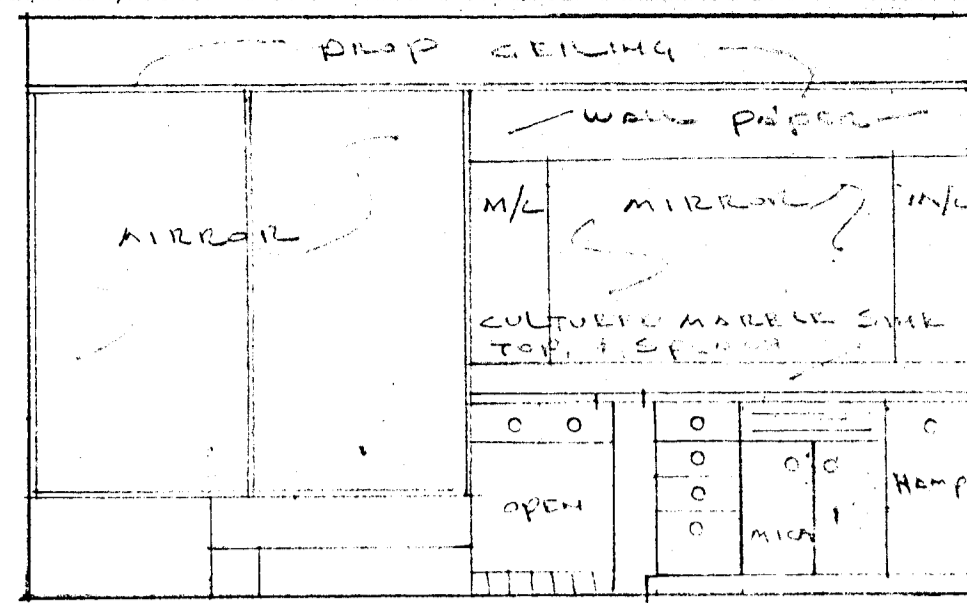 DROP CEILING
WALL PAPER
M/C
MIRROR
M/C
MIRROR
CULTURED MARBLE SINK
TOP, & SPLASH
OPEN
HAMP
MICA